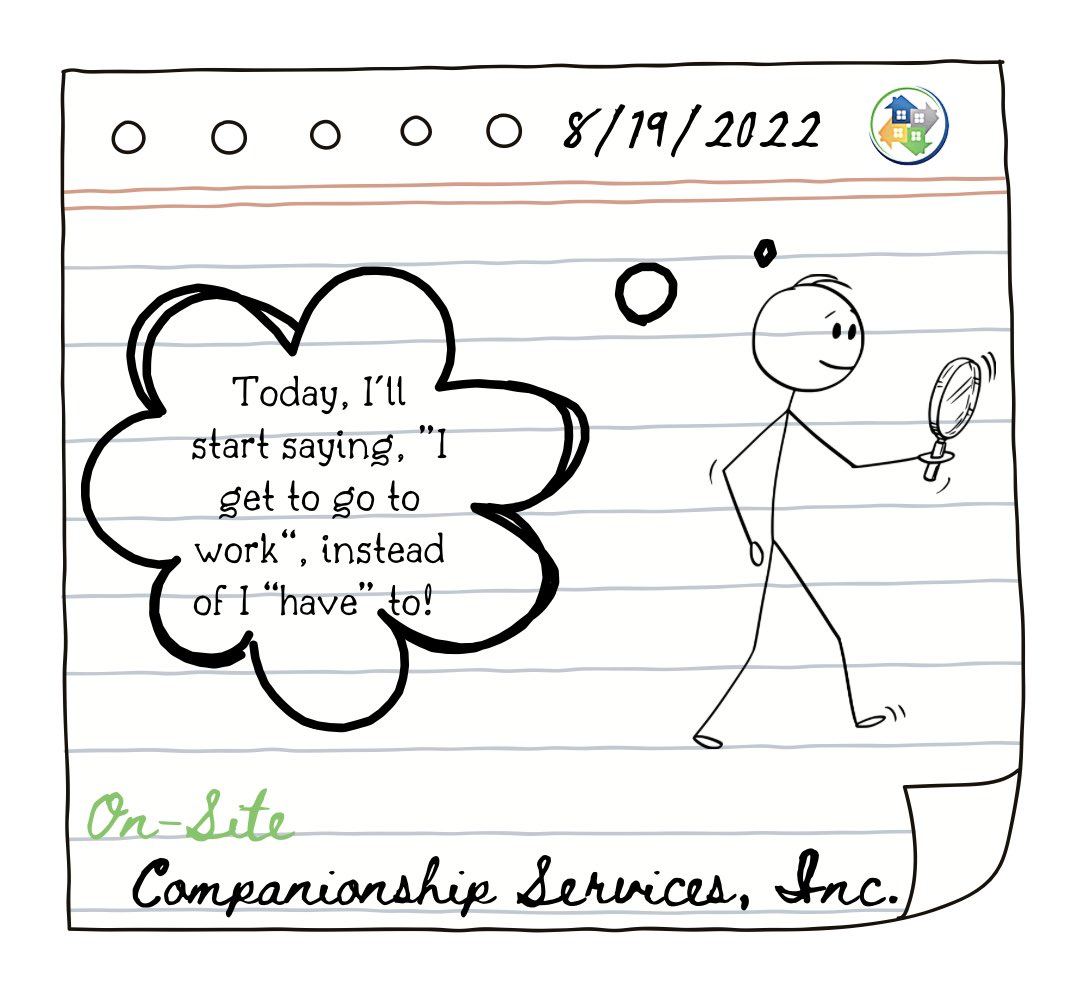 8/19/2022
Today, I'll
start saying, "I
get to go to
work“, instead
of I “have” to!
On-Site
Companionship Services, Inc.